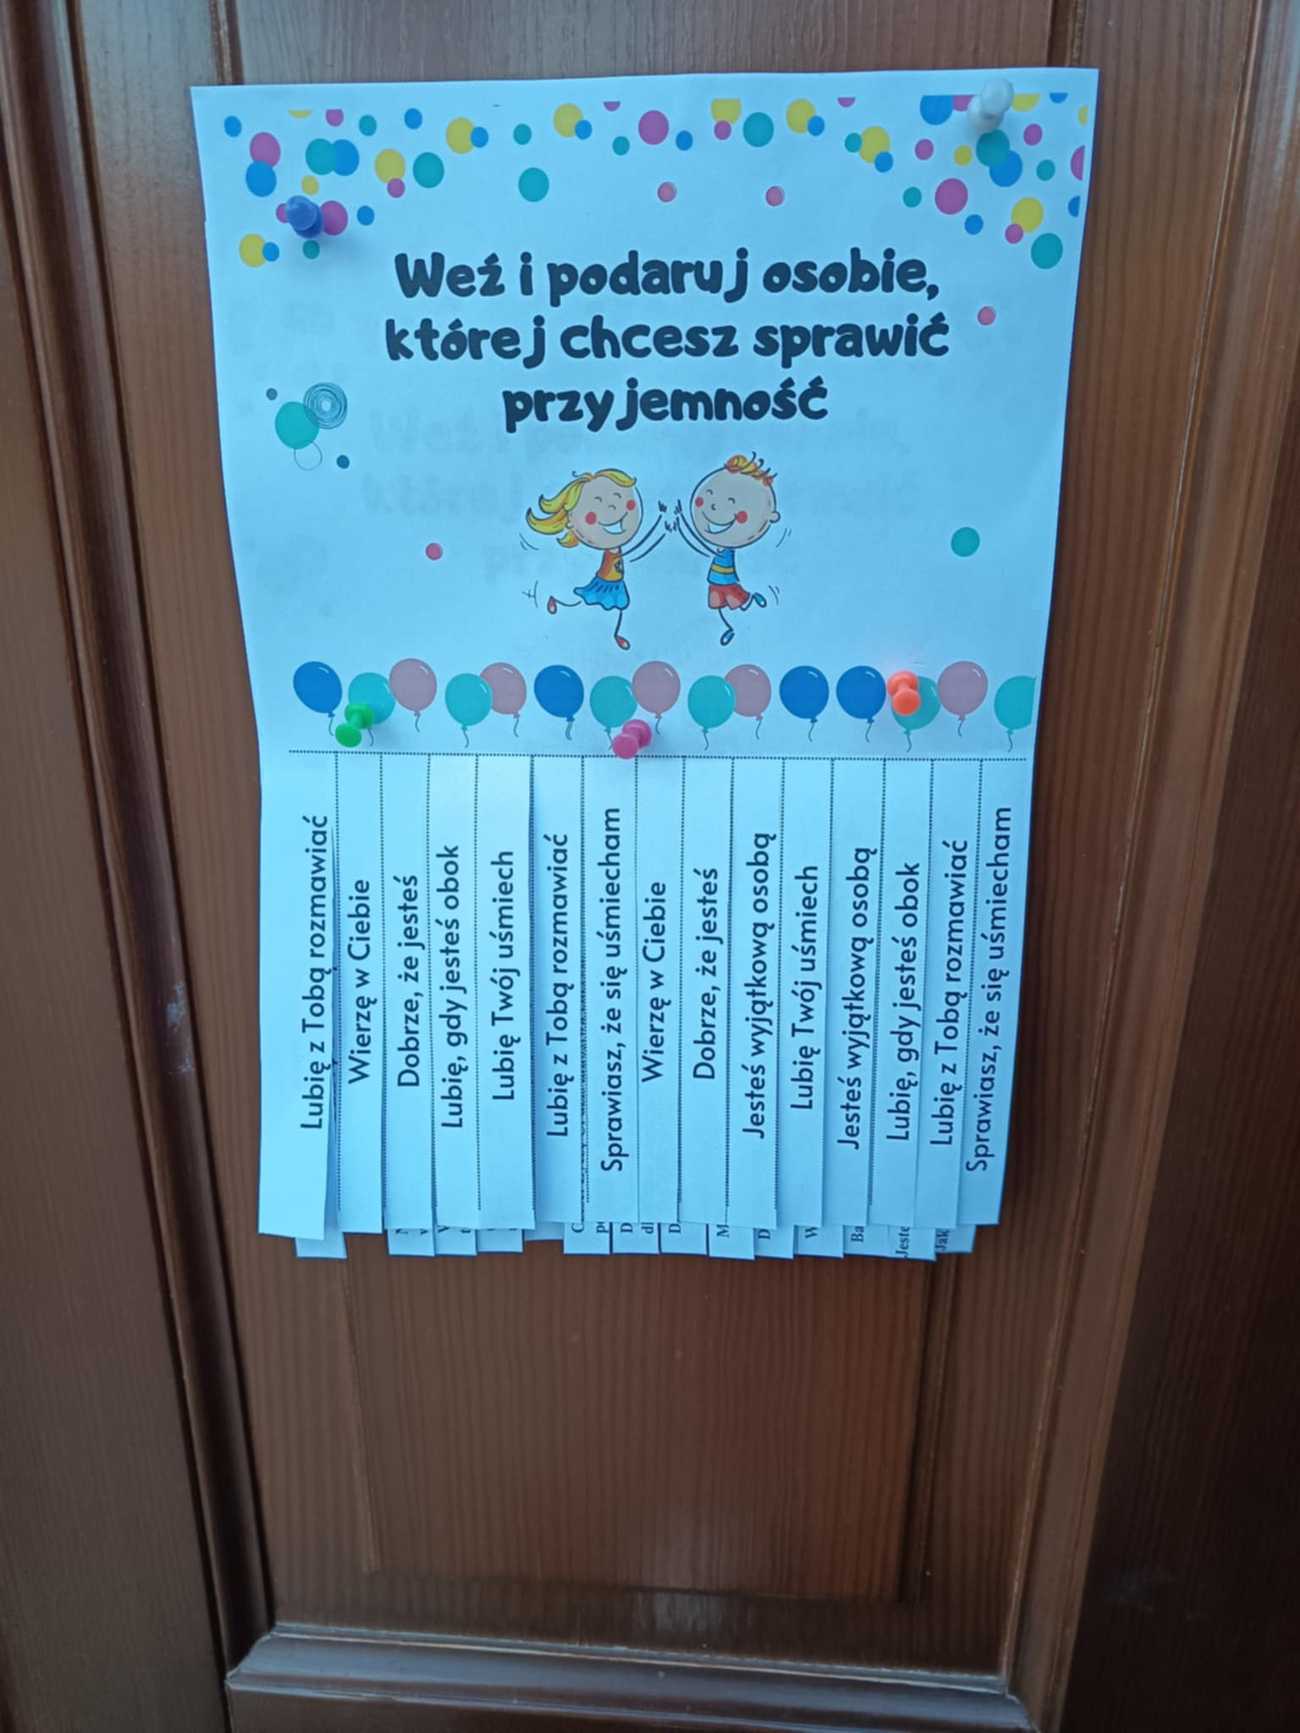 Weź i podaruj osobie,
której chcesz sprawić
przyjemność
Lubię z Tobą rozmawiać
Wierzę w Ciebie
Dobrze, że jesteś
Lubię, gdy jesteś obok
Lubię Twój uśmiech
Lubię z Tobą rozmawiać
Sprawiasz, że się uśmiecham
Wierzę w Ciebie
Dobrze, że jesteś
Jesteś wyjątkową osobą
Lubię Twój uśmiech
Jesteś wyjątkową osobą
Lubię, gdy jesteś obok
Lubię z Tobą rozmawiać
Sprawiasz, że się uśmiecham